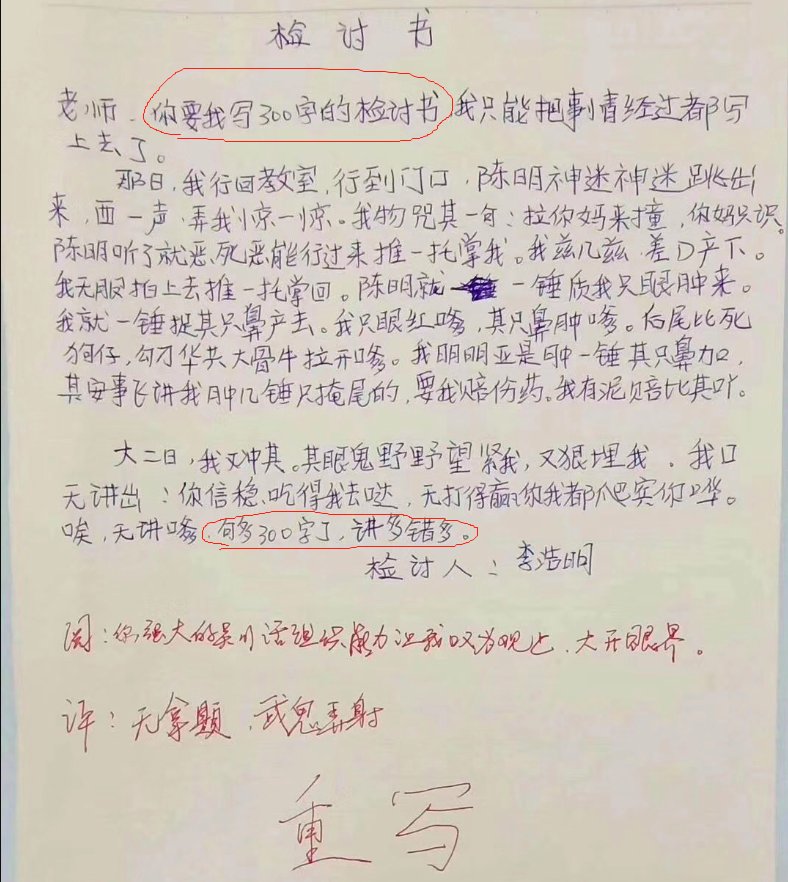 检讨书
老师、你要我写300字的检讨书我只能把事情经过都写
上去了。
那日,我行回教室,行到门口,陈明神迷神迷跳出
来,西一声,弄我惊一惊。我物咒其一句:拉你妈来撞,你妈只识。
陈明听了就恶、死恶能行过来推一托掌我。我兹几兹,差D产下。
我无服拍上去推一托掌回。陈明就一锤质我只眼肿来。
我就一锤捉其只鼻产去。我只眼红嗲,其只鼻肿嗲。后尾比死
狗仔,勾刁华共大骨牛拉开嗲。我明明亚是中一锤其只鼻加,
其安事飞讲我中几锤只掩尾的,要我赔伤药。我有泥赔比其吖。
大二日,我又冲其。其眼鬼野野望紧我,又狠埋我、我口
无讲出:你信稳、吃得我去哒,无打得赢你我都爬宾你哗。
唉,无讲嗲,句多300字了,讲多错多。
检讨人:李浩明
阅:你强大的吴川话组织能力让我叹为观止、大开眼界。
评:无拿题、武鬼弄射
重写